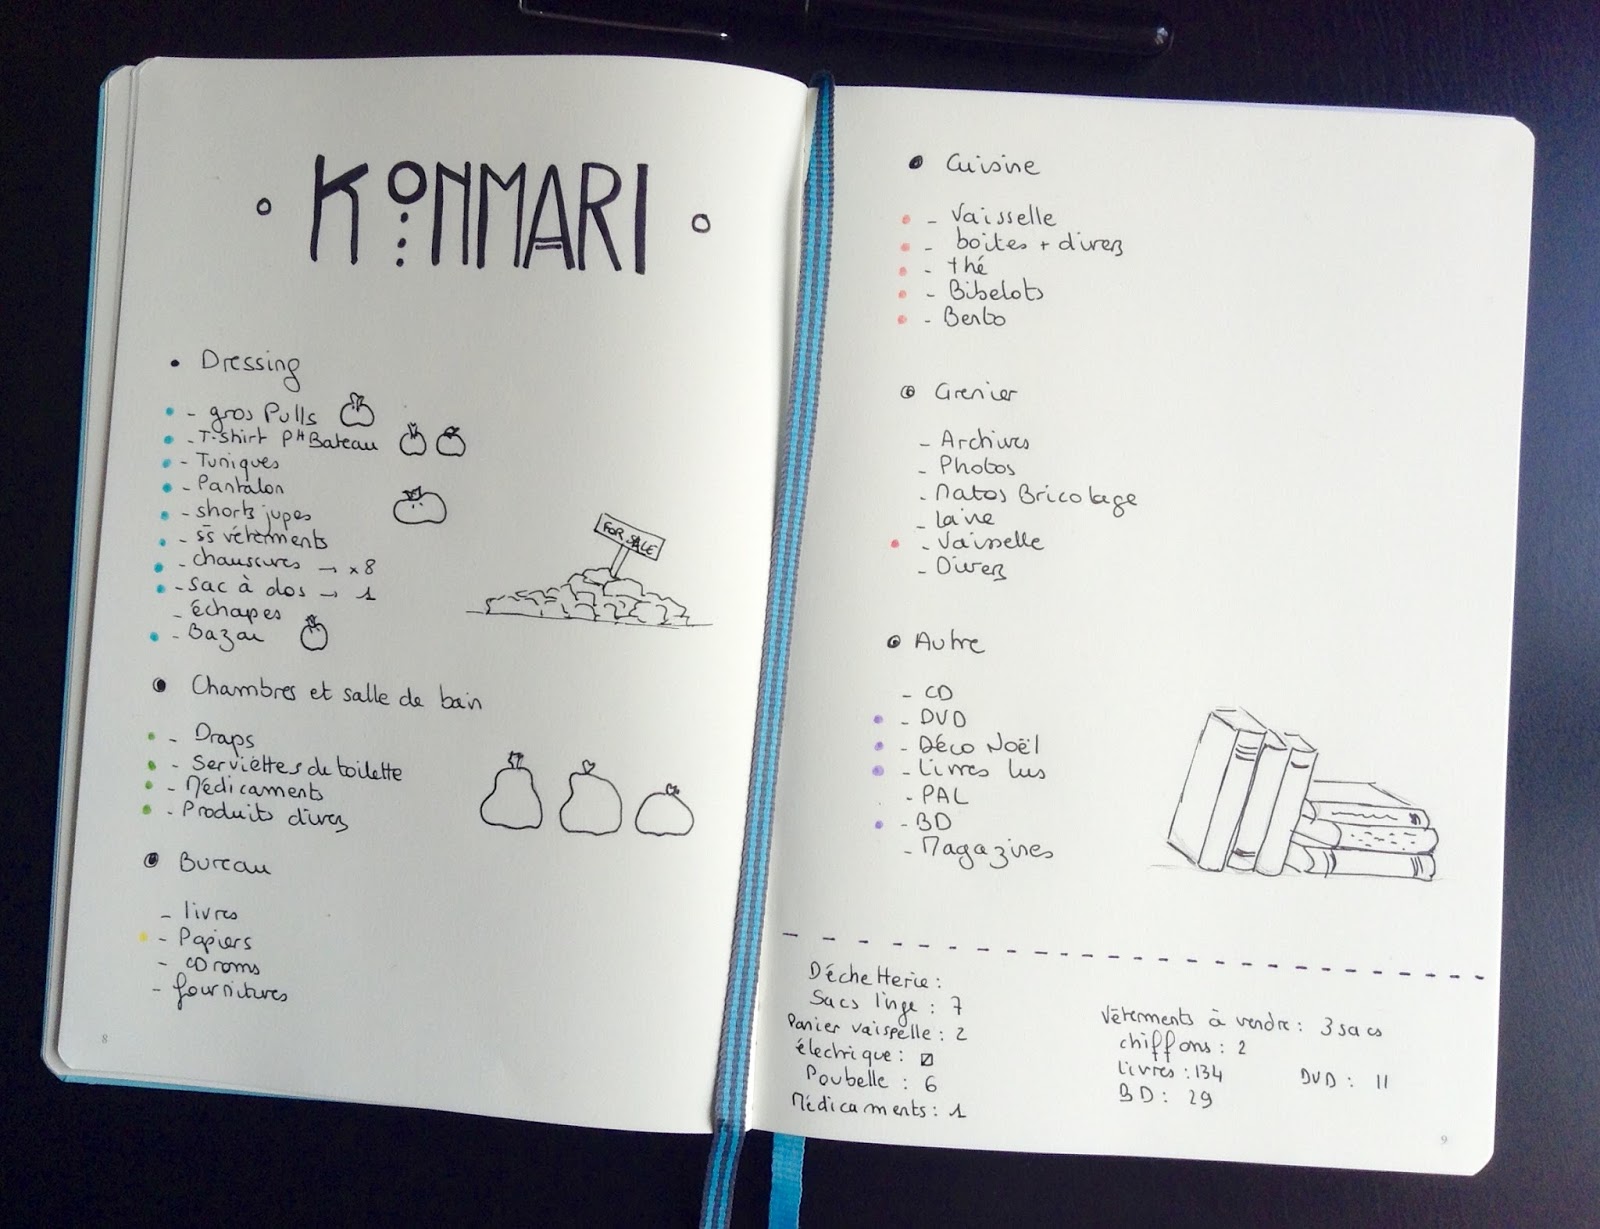 KONMARI
• Dressing
- gros Pulls
- T-shirt Pt Bateau
- Tuniques
- Pantalon
- shorts jupes
- ss vêtements
- chaussures → x8
- sac à dos → 1
- échapes
- Bazar
FOR SALE
• Chambres et salle de bain
- Draps
- Serviettes de toilette
- Médicaments
- Produits divers
• Bureau
- livres
- Papiers
- CD roms
- fournitures
8
• Cuisine
- Vaisselle
- boites + divers
- thé
- Bibelots
- Bento
• Grenier
- Archives
- Photos
- Matos Bricolage
- laine
- Vaisselle
- Divers
• Autre
- CD
- DVD
- Déco Noël
- livres lus
- PAL
- BD
- Magazines
Déchetterie :
Sacs linge : 7
Panier vaisselle : 2
électrique :
Poubelle : 6
Médicaments : 1
Vêtements à vendre : 3 sacs
chiffons : 2
livres : 134
DVD : 11
BD : 29
9